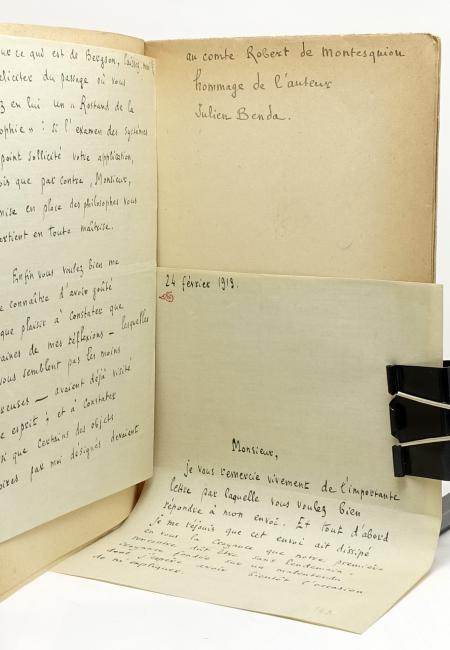 ur ce qui est de Bergson, laissez moi
éliciter du passage où vous
z en lui un « Rostand de la
ophie » : si l'examen des systèmes
point sollicité votre application,
ois que par contre, Monsieur,
mise en place des philosophes vous
artient en toute maîtrise.
Enfin vous voulez bien me
e connaître d'avoir goûté
que plaisir à constater que
aines de mes réflexions — lesquelles
vous semblent pas les moins
reuses — avaient déjà visité
e esprit ; et à constater
si que certains des objets
oires par moi désignés devaient
au comte Robert de Montesquiou
hommage de l'auteur
Julien Benda.
24 février 1913.
Monsieur,
je vous remercie vivement de l'importante
lettre par laquelle vous voulez bien
répondre à mon envoi. Et tout d'abord
je me réjouis que cet envoi ait dissipé
en vous la croyance que notre première
rencontre dût être sans lendemain.
Croyance fondée sur un malentendu
dont j'espère avoir bientôt l'occasion
de m'expliquer.